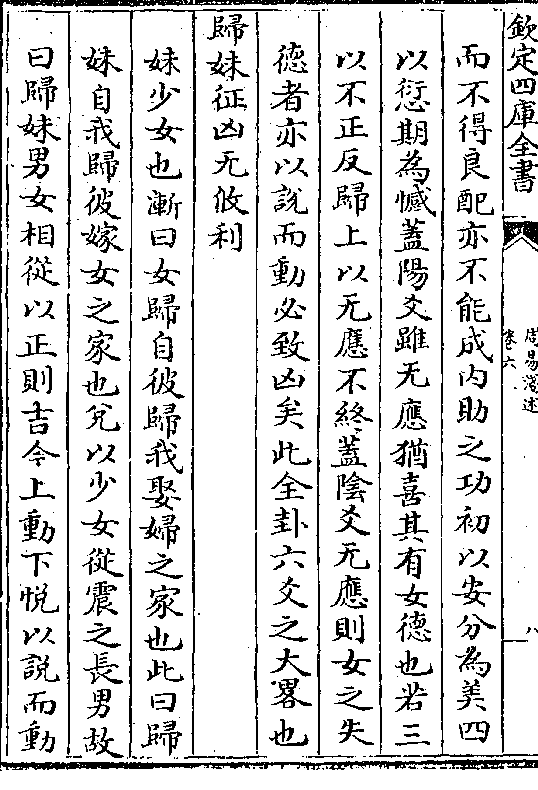 欽定四庫全書
周易淺述
卷六
八
而不得良配亦不能成内助之功初以安分為美四
以愆期為憾蓋陽爻雖无應猶喜其有女德也若三
以不正反歸上以无應不終蓋陰爻无應則女之失
德者亦以說而動必致凶矣此全卦六爻之大畧也
歸妹征凶无攸利
妹少女也漸曰女歸自彼歸我娶婦之家也此曰歸
妹自我歸彼嫁女之家也兌以少女從震之長男故
曰歸妹男女相從以正則吉今上動下悅以說而動